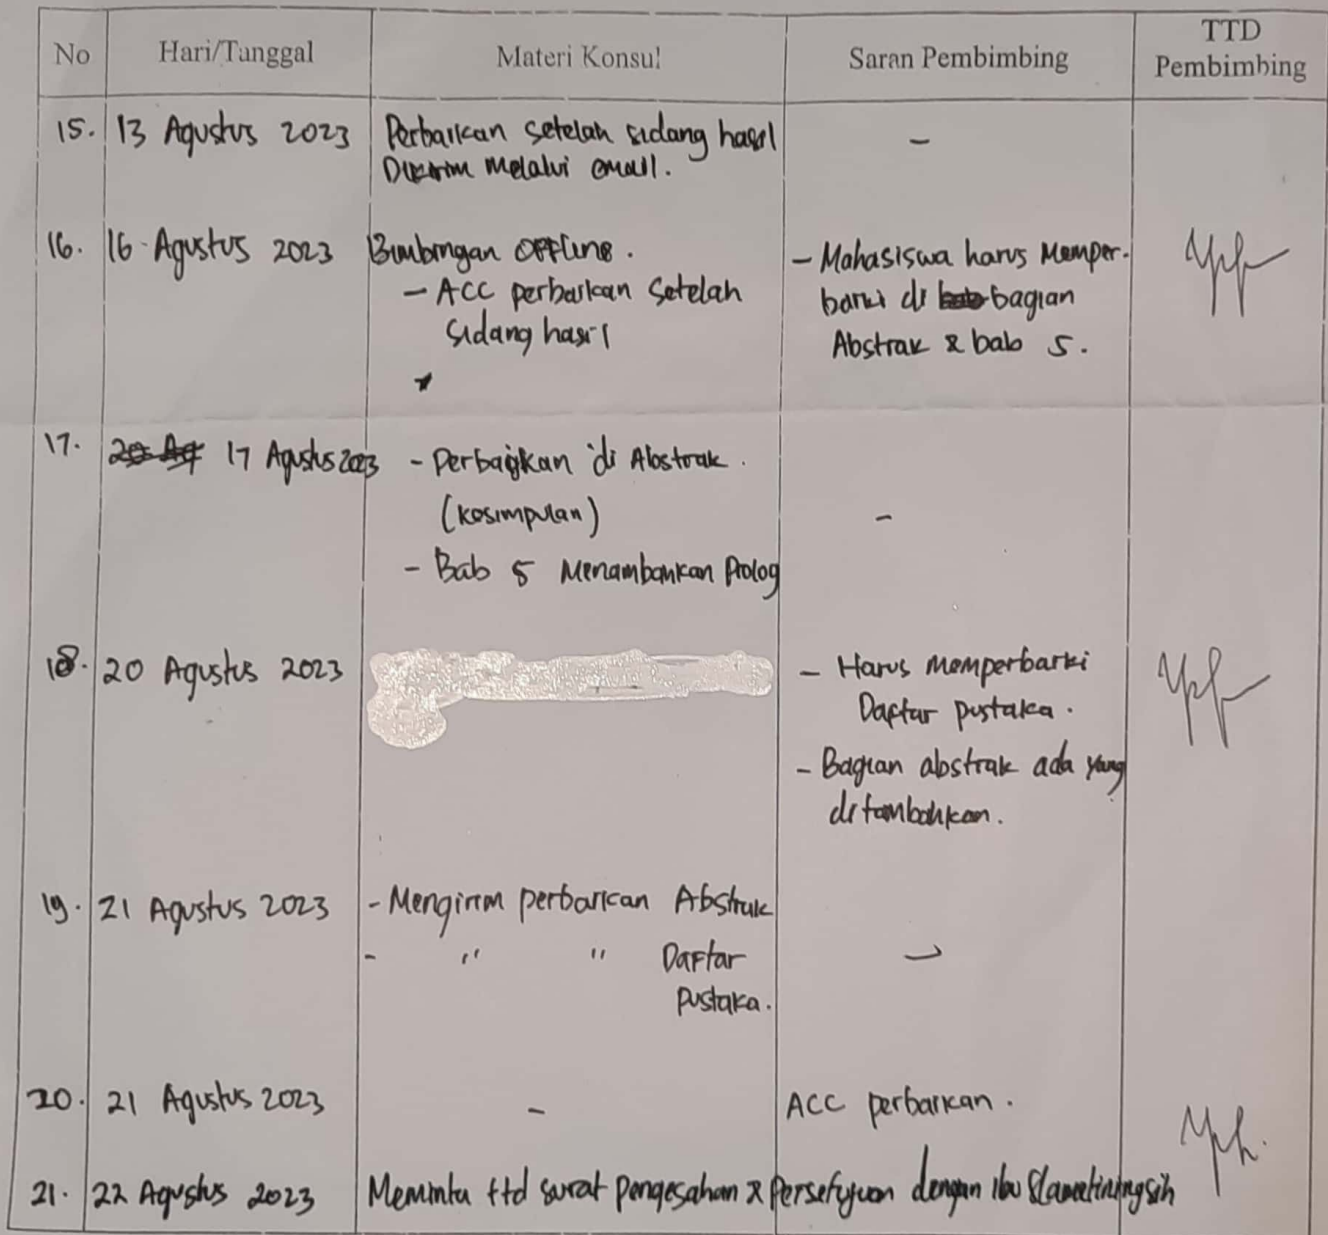 No Hari/Tanggal Materi Konsul Saran Pembimbing TTD Pembimbing
15. 13 Agustus 2023 Perbaikan setelah sidang hasil -
Dikirim Melalui email.
16. 16 Agustus 2023 Bimbingan Offline. - Mahasiswa harus Memper-
- ACC perbaikan setelah baiki di bagian
sidang hasil Abstrak & bab 5.
17. 17 Agustus 2023 - Perbaikan di Abstrak.
(kesimpulan) -
- Bab 5 Menambahkan Prolog
18. 20 Agustus 2023 - Harus memperbaiki
Daftar pustaka.
- Bagian abstrak ada yang
ditambahkan.
19. 21 Agustus 2023 - Mengirim perbaikan Abstrak
- " " Daftar -
Pustaka.
20. 21 Agustus 2023 - ACC perbaikan.
21. 22 Agustus 2023 Meminta ttd surat pengesahan & Persetujuan dengan ibu Slametiningsih